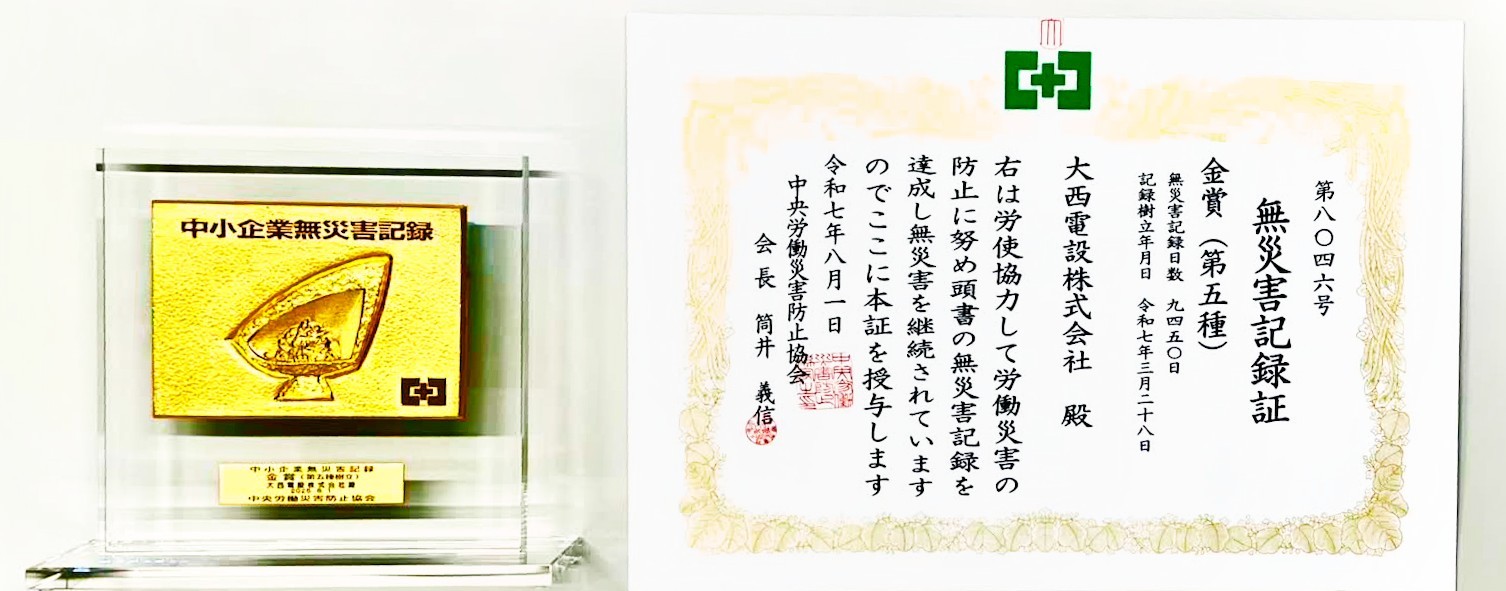 中小企業無災害記録
中小企業無災害記録
金賞(第五種樹立)
大西電設株式会社殿
2025.8.1
中央労働災害防止協会
第八〇四六号
無災害記録証
金賞(第五種)
無災害記録日数 九四五〇日
記録樹立年月日 令和七年三月二十八日
大西電設株式会社 殿
右は労使協力して労働災害の
防止に努め頭書の無災害記録を
達成し無災害を継続されています
のでここに本証を授与します
令和七年八月一日
中央労働災害防止協会
会長 筒井 義信